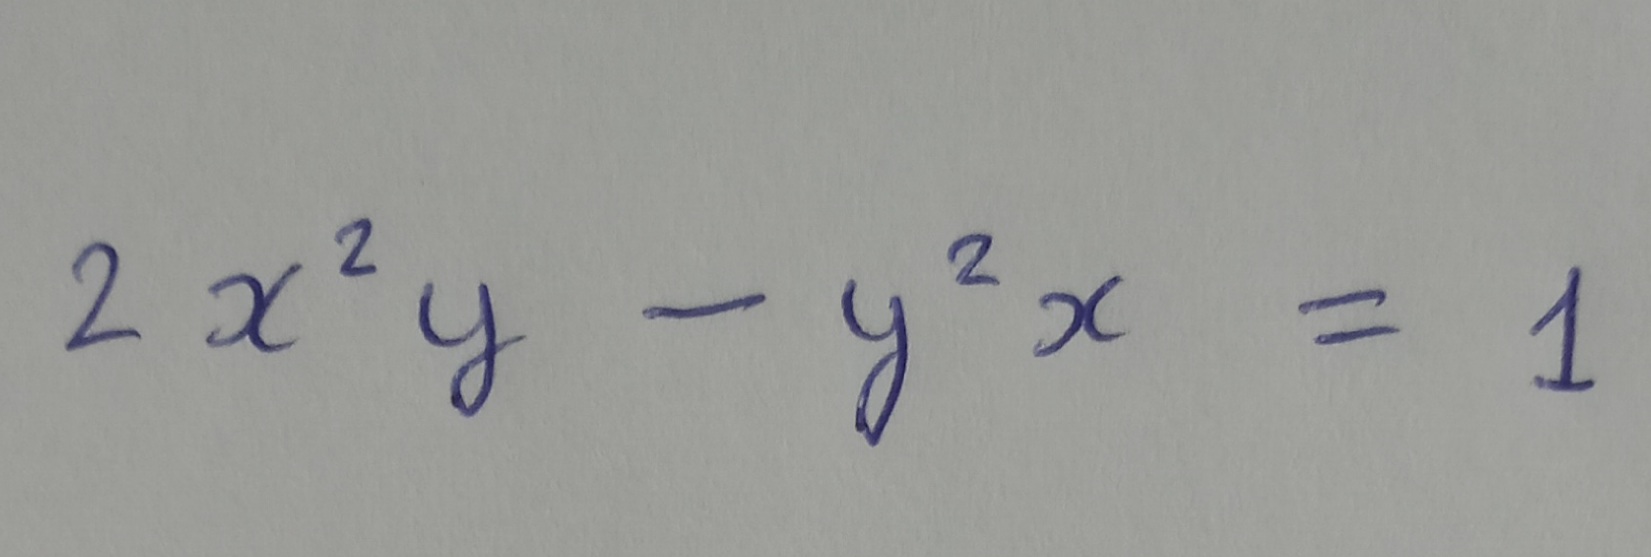 2x²y - y²x = 1